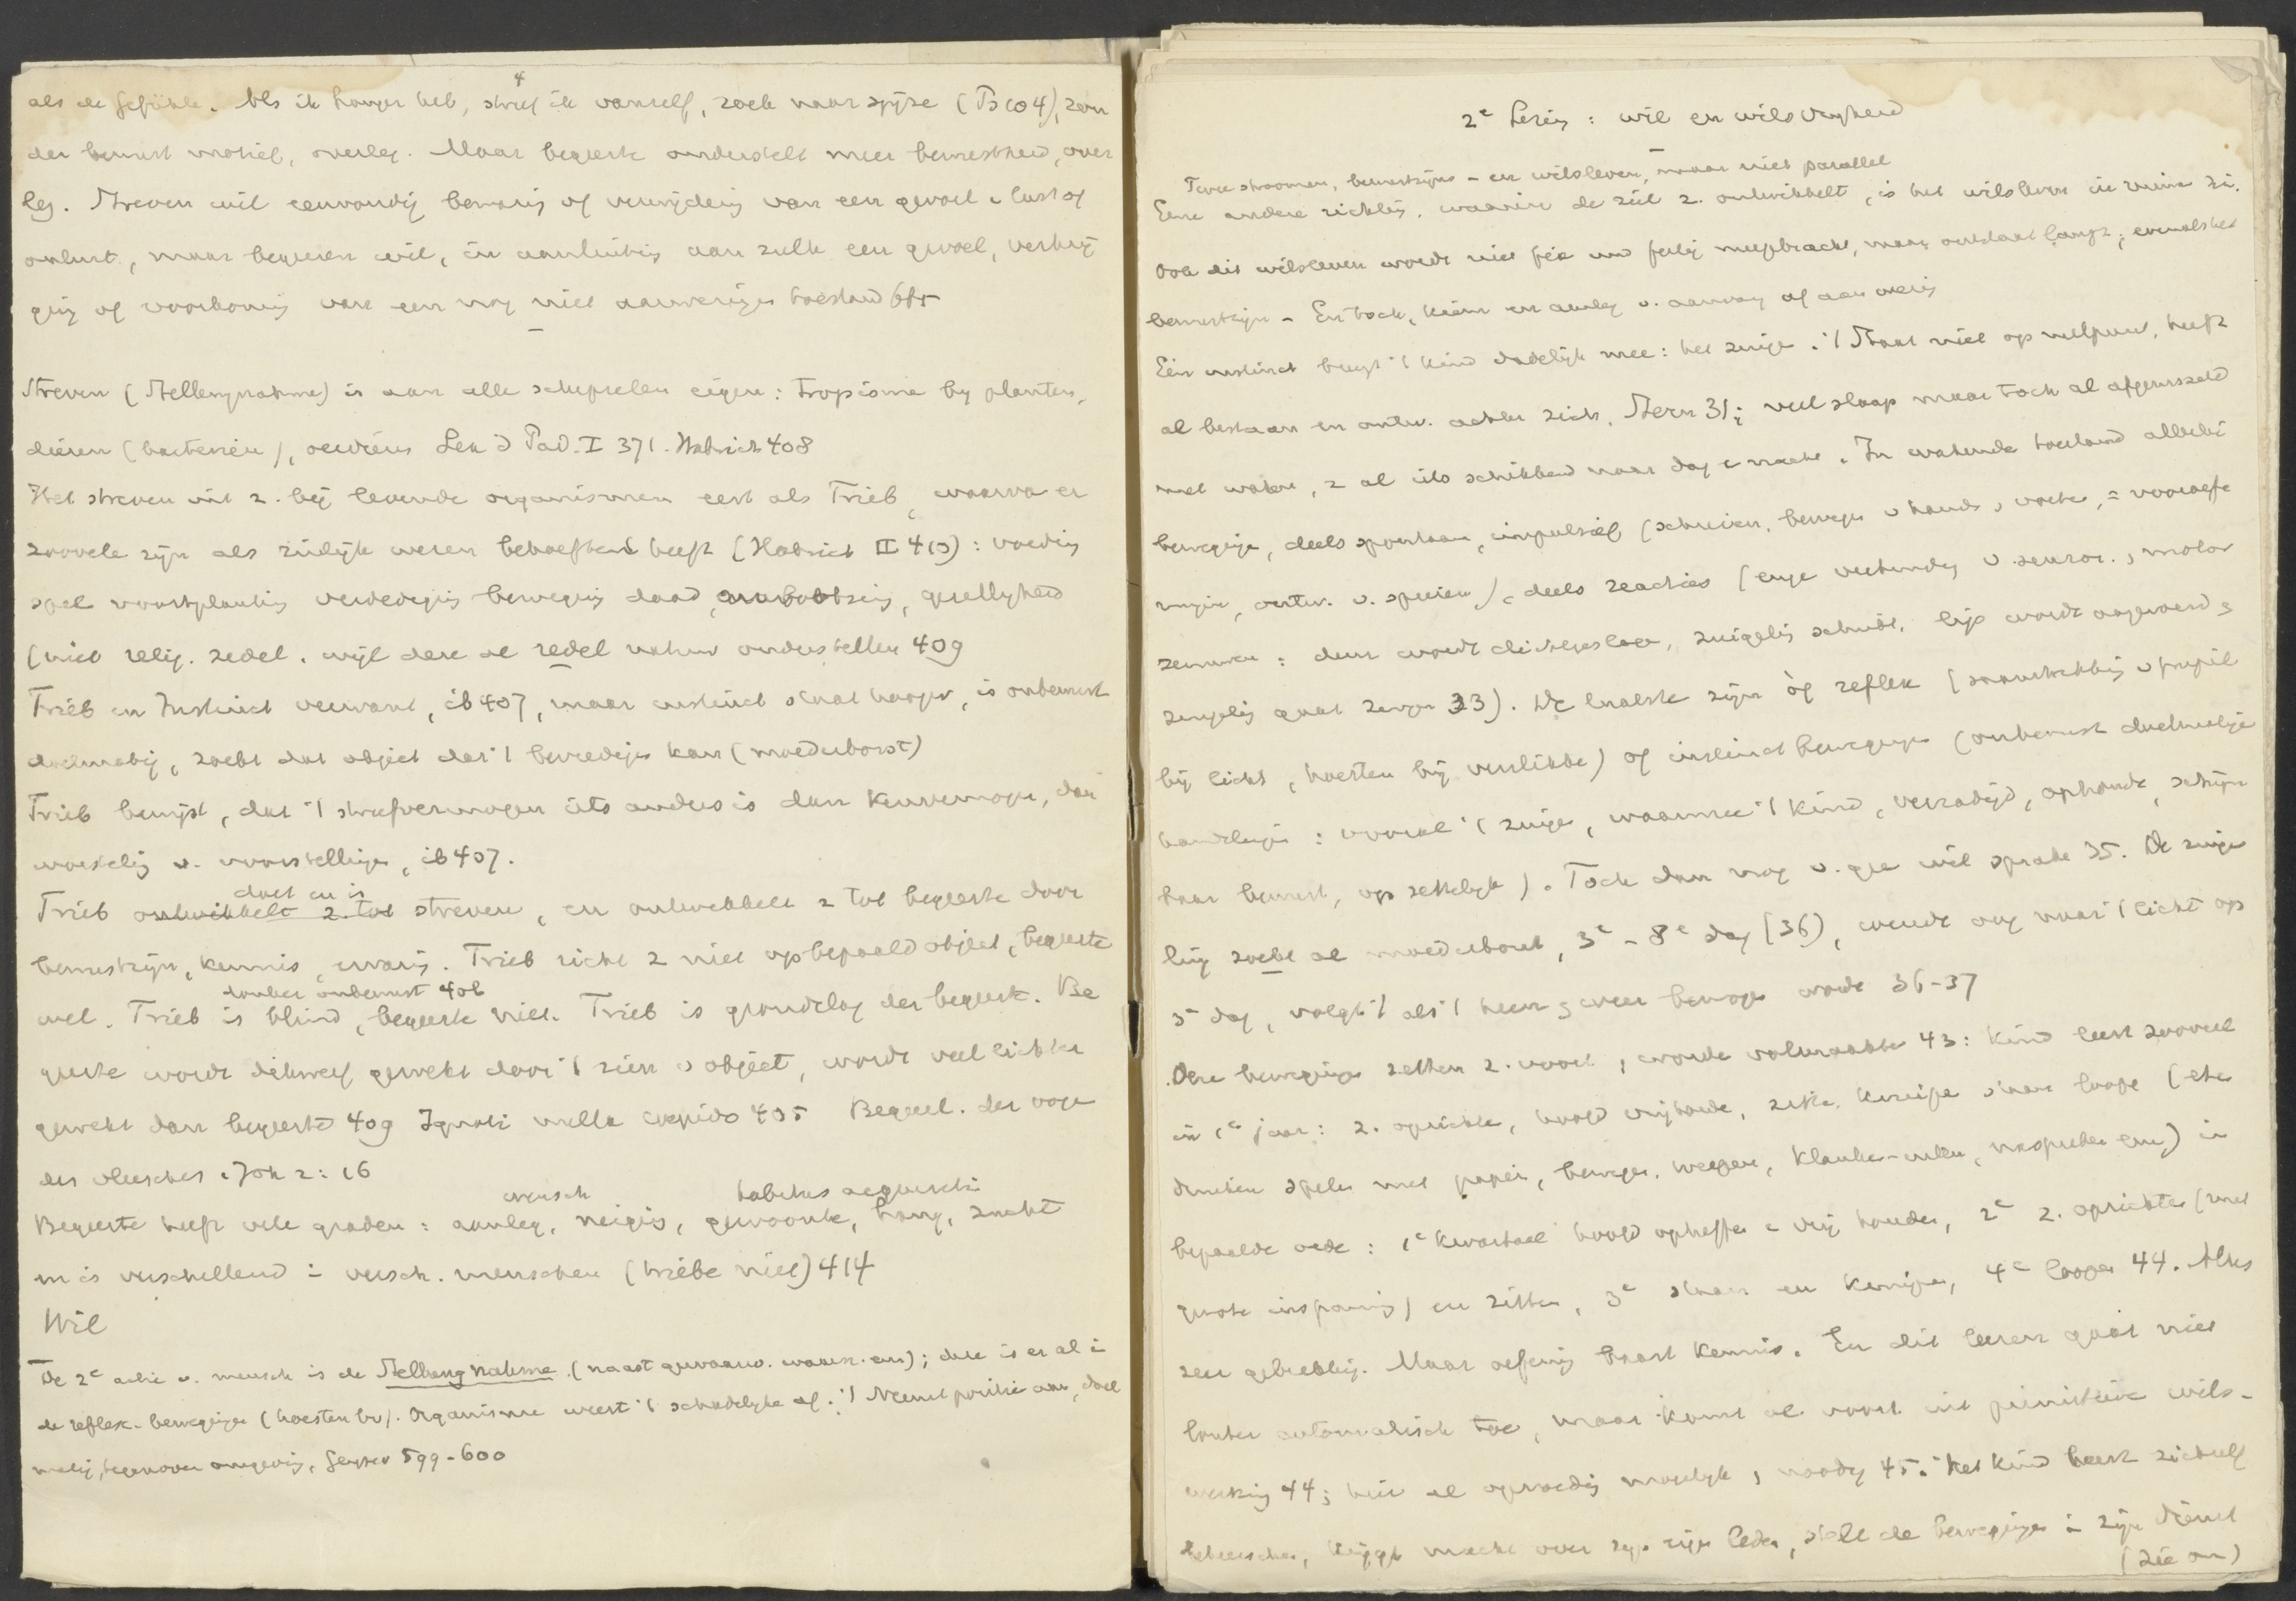 als de Gefühle. Als ik honger heb, streef ik vanzelf, zoek naar spijze (Ps 104), zon
der bewust motief, overleg. Maar begeerte onderstelt meer bewustheid, over
leg. Streven wil eenvoudig bewaring of vermijding van een gevoel v lust of
onlust, maar begeeren wil, in aansluiting aan zulk een gevoel, verkrij
ging of voorkoming van een nog niet aanwezigen toestand 615
Streven (Stellungnahme) is aan alle schepselen eigen: tropisme by planten,
dieren (bacterien), oerdieren Lex d Päd. I 371. Habrich 408
Het streven uit z. bij levende organismen eerst als Trieb, waarvan er
zoovele zijn als zinlijk wezen behoeften heeft (Habrich II 413): voeding
spel voortplanting verdediging beweging daad, gezelligheid
(niet relig. zedel. wijl deze de redel natuur onderstellen 409
Trieb en Instinct verwant, ib 407, maar instinct staat hooger, is onbewust
doelmatig, zoekt dat object dat 't bevredigen kan (moederborst)
Trieb bewijst, dat 't streefvermogen iets anders is dan kenvermogen, dan
wisseling v. voorstellingen, ib 407.
doet en is
Trieb ontwikkelt z. tot streven, en ontwikkelt z tot begeerte door
bewustzijn, kennis, ervaring. Trieb richt z niet op bepaald object, begeerte
donker onbewust 406
wel. Trieb is blind, begeerte niet. Trieb is grondslag der begeerte. Be
geerte wordt dikwerf gewekt door 't zien v object, wordt veel lichter
gewekt dan begeerte 409 Ignoti nulla cupido 405 Begeerl. der oogen
des vleesches 1 Joh 2:16
mensch habitus acquisiti
Begeerte heeft vele graden: aanleg, neiging, gewoonte, hang, zucht
en is verschillend in versch. menschen (triebe niet) 414
Wil
De 2e actie v. mensch is de Stellungnahme (naast gewaarw. waarn. enz); deze is er al in
de reflex-bewegingen (hoesten bv). Organisme weert 't schadelijke af. 't Neemt positie aan, doel
matig, tegenover omgeving, Geyser 599-600
2e Lezing: wil en wilsvryheid
Twee stroomen, bewustzijns- en wilsleven, maar niet parallel
Eene andere richting, waarin de ziel z. ontwikkelt, is het wilsleven in ruime zin.
Ook dit wilsleven wordt niet fix und fertig meegebracht, maar ontstaat langz; evenals het
bewustzijn - En toch, kiem en aanleg v. aanvang af aanwezig
Eén instinct brengt 't kind dadelijk mee: het zuigen. 't Staat niet op nulpunt, heeft
al bestaan en ontw. achter zich, Stern 31; veel slaap maar toch al afgewisseld
met waken, z al iets schikkend naar dag e nacht. In wakende toestand allerlei
bewegingen, deels spontaan, impulsief (schreien, bewegen v hand, voeten, = vooroefe
ningen, ontw. v. spieren), deels reacties (enge verbinding v sensor. motor
zenuwen: deur wordt dichtgeslagen, zuigeling schrikt, lip wordt aangeroerd &
zuigeling gaat zuigen 33). De laatste zijn òf reflex (samentrekking v pupil
bij licht, hoesten bij verslikken) of instinctbewegingen (onbewust doelmatige
handelingen: vooral 't zuigen, waarmee 't kind, verzadigd, ophoudt, schijn
baar bewust, opzettelijk). Toch dan nog v. gee wil sprake 35. De zuige
ling zoekt al moederborst, 3e-8e dag (36), wendt oog naar 't licht op
5e dag, volgt 't als 't heen & weer bewogen wordt 36-37
Deze bewegingen zetten z. voort, worden volmaakter 43: kind leert zooveel
in 1e jaar: z. oprichten, hoofd vrijhouden, zitten, kruipen staan loopen (eten
drinken spelen met papier, bewegen, werpen, naspreken enz) in
bepaalde orde: 1e kwartaal hoofd opheffen e vrij houden, 2e z. oprichten (met
groote inspanning) en zitten, 3e staan en kruipen, 4e loopen 44. Alles
zeer gebrekkig. Maar oefening baart kennis. En dit leeren gaat niet
louter automatisch toe, maar komt al voort uit primitieve wils-
werking 44; hier al opvoeding mogelijk, noodig 45. Het kind leert zichzelf
beheerschen, krijgt macht over zijn leden, stelt de bewegingen in zijn dienst
(zie om)